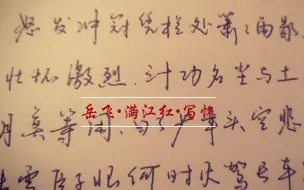 怒发冲冠凭栏处萧:雨歇
壮怀激烈.三十功名尘与土
岳飞·满江红·写怀
月莫等闲 少年头空悲
雪臣子恨何时灭驾长车